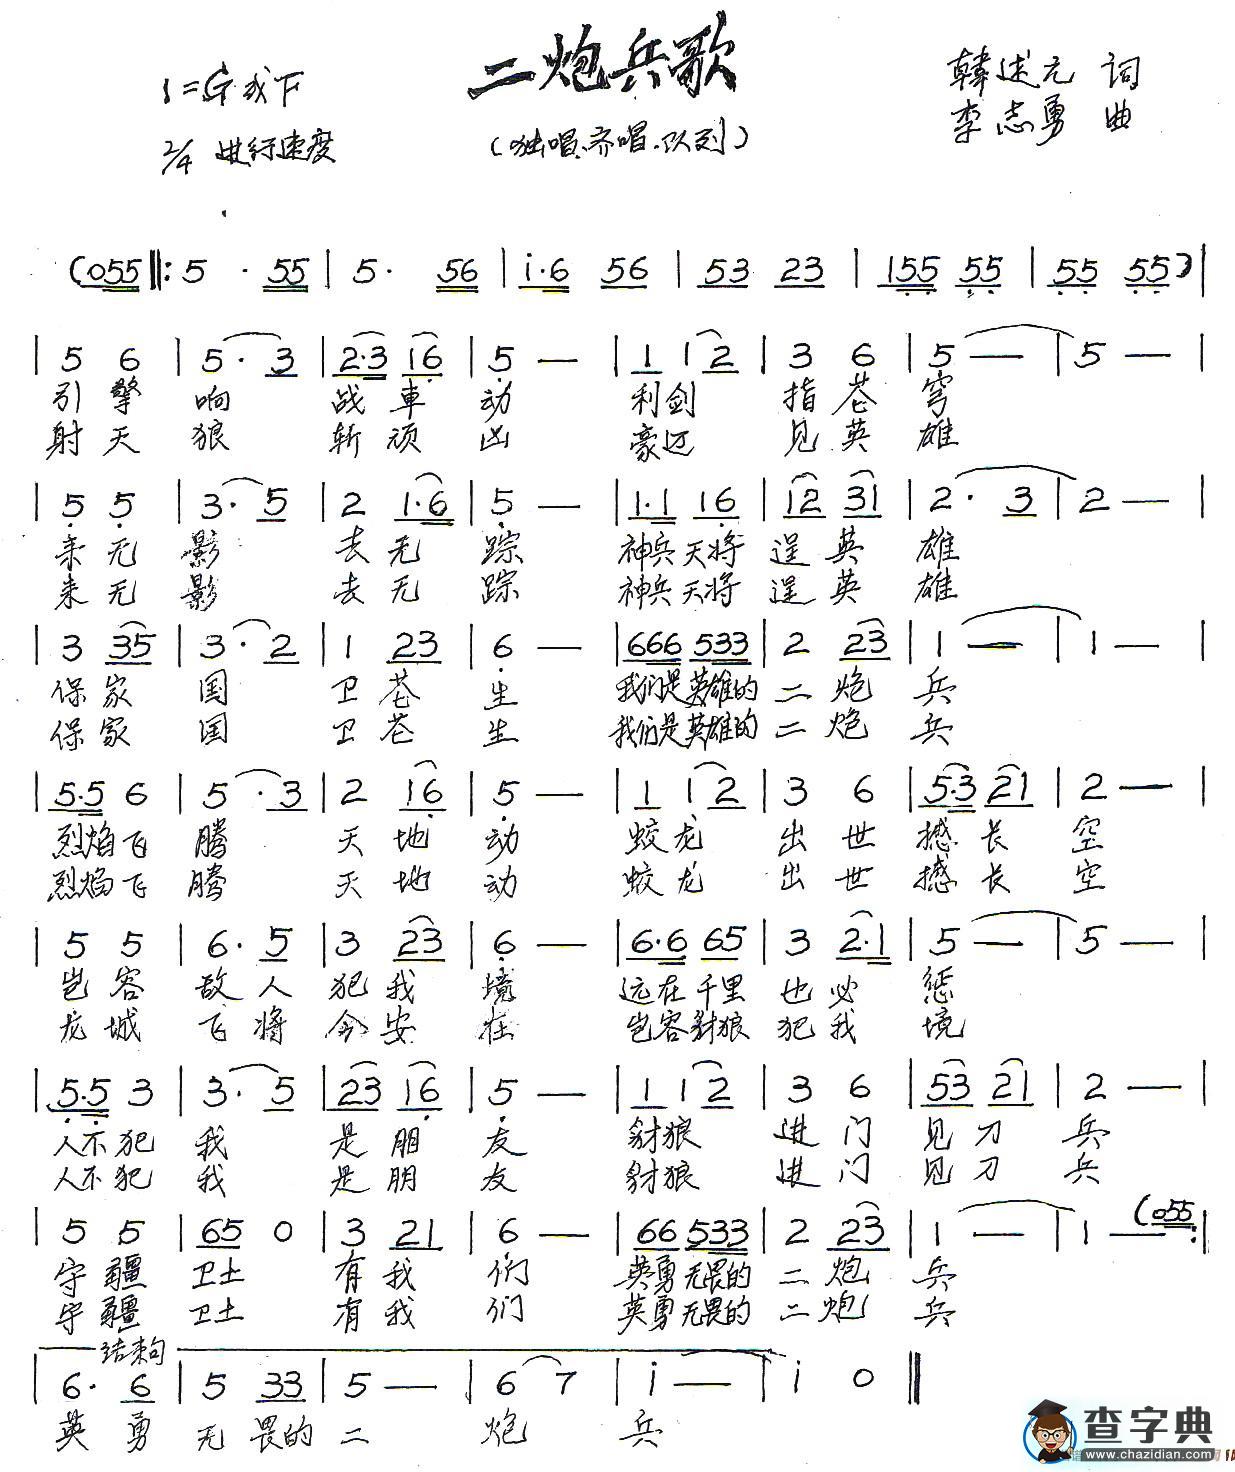 二炮兵歌
1=G或F
韩述元 词
2/4 进行速度
(独唱、齐唱、队列)
李志勇 曲
(055 ‖: 5 · 55 | 5 · 56 | i·6 56 | 53 23 | 155 55 | 55 55) |
| 5 6 | 5 · 3 | 2·3 16 | 5 — | 1 1 2 | 3 6 | 5 — | 5 — |
引擎响 战車动 利剑 指苍穹
射天狼 斩顽凶 豪迈 见英雄
| 5 5 | 3 · 5 | 2 1·6 | 5 — | 1·1 16 | 12 31 | 2 · 3 | 2 — |
来无影 去无踪 神兵天将 逞英雄
来无影 去无踪 神兵天将 逞英雄
| 3 35 | 3 · 2 | 1 23 | 6 — | 666 533 | 2 23 | 1 — | 1 — |
保家国 卫苍生 我们是英雄的二炮兵
保家国 卫苍生 我们是英雄的二炮兵
| 5·5 6 | 5 · 3 | 2 16 | 5 — | 1 1 2 | 3 6 | 5·3 21 | 2 — |
烈焰飞腾 天地动 蛟龙 出世撼长空
烈焰飞腾 天地动 蛟龙 出世撼长空
| 5 5 | 6 · 5 | 3 23 | 6 — | 6·6 65 | 3 2·1 | 5 — | 5 — |
岂容敌人犯我境 远在千里也必惩
龙城飞将今安在 岂容豺狼犯我境
| 5·5 3 | 3 · 5 | 23 16 | 5 — | 1 1 2 | 3 6 | 53 21 | 2 — |
人不犯我 是朋友 豺狼 进门见刀兵
人不犯我 是朋友 豺狼 进门见刀兵
| 5 5 | 65 0 | 3 21 | 6 — | 66 533 | 2 23 | 1 — | 1 — (055 :|
守疆卫土 有我们 英勇无畏的二炮兵
守疆卫土 有我们 英勇无畏的二炮兵
结束句
| 6 · 6 | 5 33 | 5 — | 6 7 | i — | i 0 ‖
英勇无畏的二 炮兵
查字典
www.chazidian.com